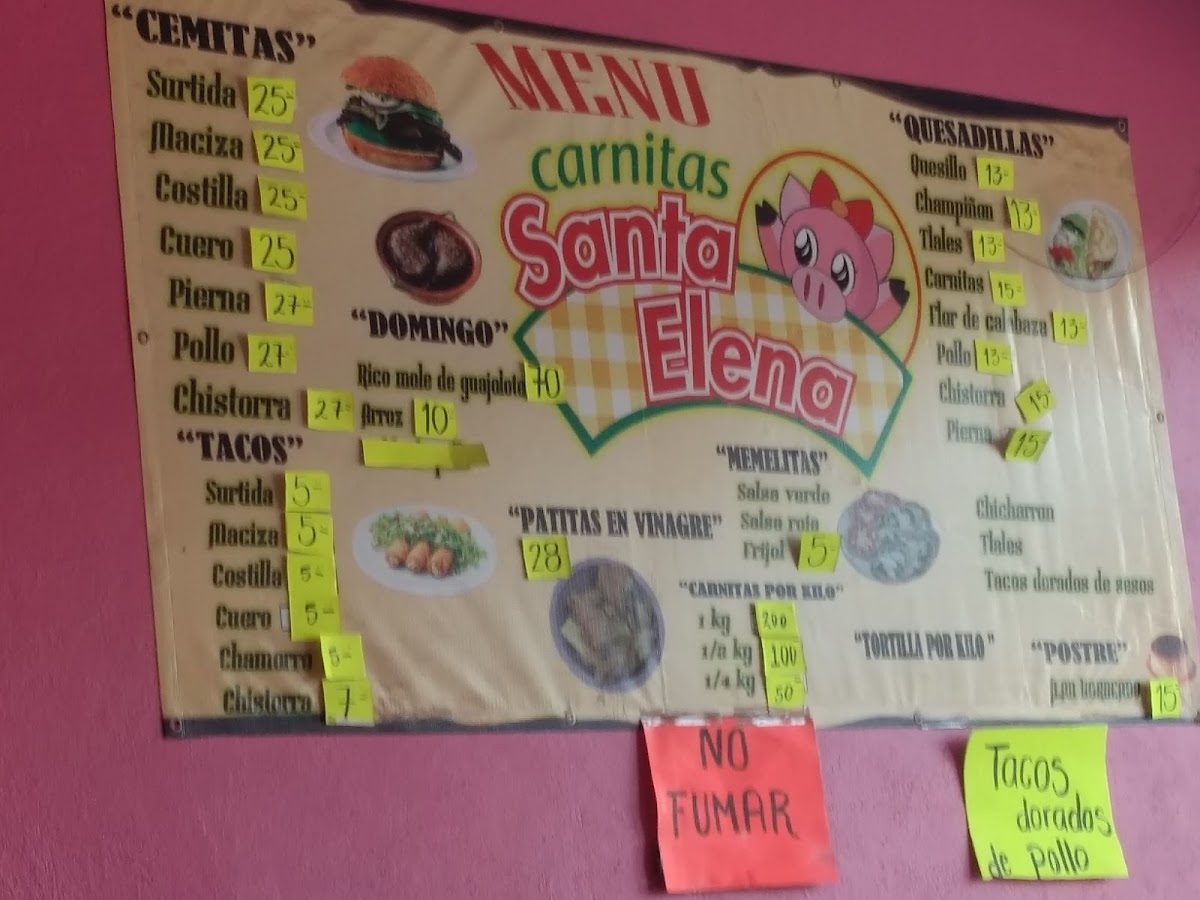 "CEMITAS"
Surtida 25-
Maciza 25-
Costilla 25-
Cuero 25
Pierna 27-
Pollo 27
Chistorra 27-
"TACOS"
Surtida 5-
Maciza 5-
Costilla 5-
Cuero 5-
Chamorro 5-
Chistorra 7-
MENU
carnitas
Santa
Elena
"DOMINGO"
Rico mole de guajolote 70
Arroz 10
"PATITAS EN VINAGRE"
28
"MEMELITAS"
Salsa verde
Salsa roja
Frijol 5-
"CARNITAS POR KILO"
1 kg 200
1/2 kg 100
1/4 kg 50
"QUESADILLAS"
Quesillo 13-
Champiñon 13-
Tlales 13-
Carnitas 15-
Flor de calabaza 13-
Pollo 13-
Chistorra 15-
Pierna 15-
Chicharron
Tlales
Tacos dorados de sesos
"TORTILLA POR KILO"
"POSTRE"
15
NO
FUMAR
Tacos
dorados
de pollo